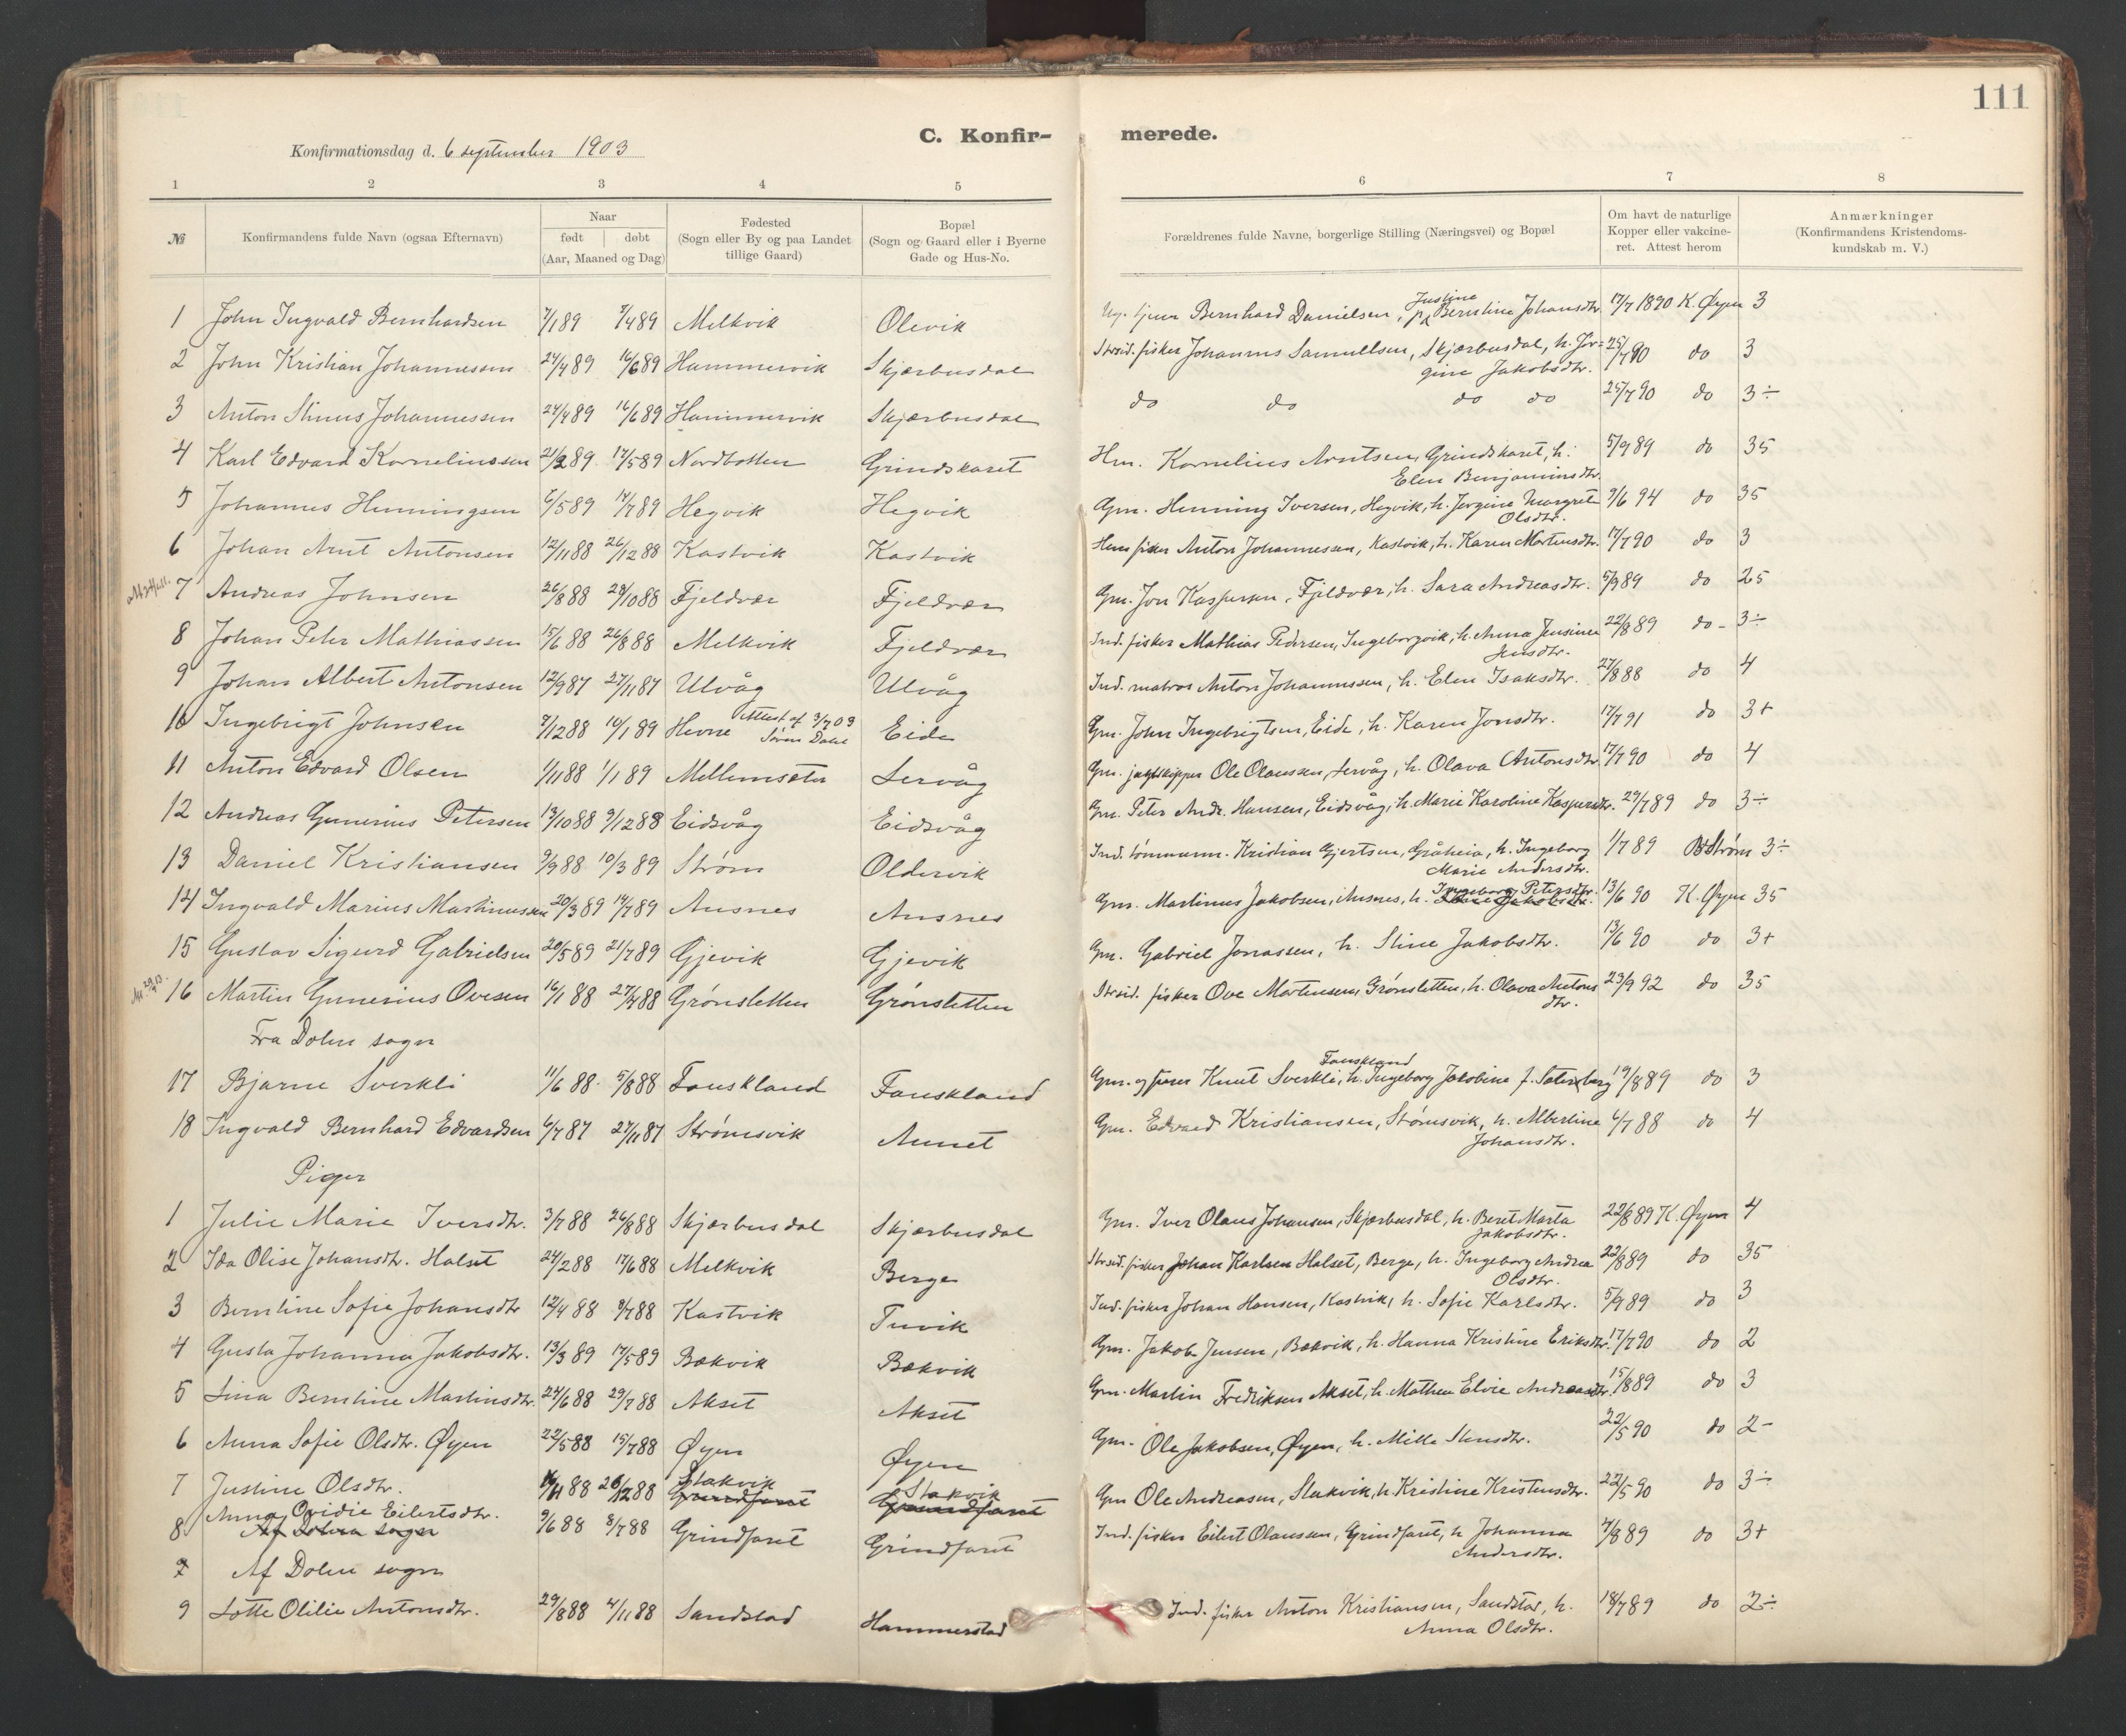 111
C. Konfir- merede.
Konfirmationsdag d. 6 september 1903
1 2 3 4 5 6 7 8
№ Konfirmandens fulde Navn (ogsaa Efternavn) Naar født døbt (Aar, Maaned og Dag) Fødested (Sogn eller By og paa Landet tillige Gaard) Bopæl (Sogn og Gaard eller i Byerne Gade og Hus-No.) Forældrenes fulde Navne, borgerlige Stilling (Næringsvei) og Bopæl Om havt de naturlige Kopper eller vakcineret. Attest herom Anmærkninger (Konfirmandens Kristendomskundskab m. V.)
1 John Ingvald Bernhardsen 7/1 89 7/4 89 Melkvik Olevik Bernhard Danielsen, Justine Berntine Johansdtr. 17/7 1890 K. Øyen 3
2 John Kristian Johannessen 24/4 89 16/6 89 Hammervik Skjærbusdal Strsid. fisker Johannes Samuelsen, Skjærbusdal, h. Jørgine Jakobsdtr. 25/7 90 do 3
3 Anton Stinus Johannessen 24/4 89 16/6 89 Hammervik Skjærbusdal do do do do 25/7 90 do 3÷
4 Karl Edvard Kornelinssen 21/2 89 17/5 89 Nordbotten Grindskaret Hm. Kornelius Arntsen, Grindskaret, h. Elen Benjaminsdtr. 5/9 89 do 35
5 Johannes Henningsen 6/5 89 14/7 89 Hegvik Hegvik Gm. Henning Iversen, Hegvik, h. Jørgine Margrete Olsdtr. 9/6 94 do 35
6 Johan Arnt Antonsen 12/11 88 26/12 88 Kastvik Kastvik Hm fisker Anton Johannessen, Kastvik, h. Karen Martensdtr. 17/7 90 do 3
7 Andreas Johnsen 26/8 88 28/10 88 Fjeldvær Fjeldvær Gm. Jon Kaspersen, Fjeldvær, h. Sara Andreasdtr. 5/9 89 do 25
8 Johan Peter Mathiassen 15/6 88 26/8 88 Melkvik Fjeldvær Ind. fisker Mathias Pedersen, Ingeborgvik, h. Anna Jensine Jensdtr. 22/8 89 do 3÷
9 Johan Albert Antonsen 12/9 87 27/11 87 Ulvåg Ulvåg Ind. matros Anton Johannessen, h. Elen Isaksdtr. 27/8 88 do 4
10 Ingebrigt Johnsen 7/12 88 10/1 89 Hevne Attest af 3/7 03 Sven Dahl Eide Gm. John Ingebrigtsen, Eide, h. Karen Jonsdtr. 17/7 91 do 3+
11 Anton Edvard Olsen 1/11 88 1/1 89 Mellemsæter Servåg Gm. jagtskipper Ole Olaussen, Servåg, h. Olava Antonsdtr. 17/7 90 do 4
12 Andreas Gunerius Petersen 13/10 88 9/12 88 Eidsvåg Eidsvåg Gm. Peter Andr. Hansen, Eidsvåg, h. Marie Karoline Kaspersdtr. 29/7 89 do 3÷
13 Daniel Kristiansen 9/9 88 10/3 89 Strøm Oldervik Ind. tømmerm. Kristian Gjertsen, Gråheia, h. Ingeborg Marie Andersdtr. 1/7 89 Strøm 3÷
14 Ingvald Marius Martinussen 20/3 89 14/7 89 Ansnes Ansnes Gm. Martinus Jakobsen, Ansnes, h. Ingeborg Petersdtr. 13/6 90 K. Øyen 35
15 Gustav Sigurd Gabrielsen 20/5 89 21/7 89 Gjevik Gjevik Gm. Gabriel Jonassen, h. Stine Jakobsdtr. 13/6 90 do 3+
16 Martin Gunerius Ovesen 16/1 88 27/4 88 Grønsletten Grønsletten Strsid. fisker Ove Mortensen, Grønsletten, h. Olava Antonsdtr. 23/9 92 do 35
Fra Dolm sogn
17 Bjarne Sverkli 11/6 88 5/8 88 Fauskland Fauskland Gm. og fører Knut Sverkli, Fauskland h. Ingeborg Jakobine f. Sæterberg 19/8 89 do 3
18 Ingvald Bernhard Edvardsen 6/7 87 27/11 87 Strømsvik Aunet Gm. Edvard Kristiansen, Strømsvik, h. Albertine Johansdtr. 6/7 88 do 4
Piger
1 Julie Marie Iversdtr. 3/7 88 26/8 88 Skjærbusdal Skjærbusdal Gm. Iver Olaus Johansen, Skjærbusdal, h. Beret Marta Jakobsdtr. 22/8 89 K. Øyen 4
2 Ida Olise Johansdtr. Halset 24/2 88 17/6 88 Melkvik Berge Strsid. fisker Johan Karlsen Halset, Berge, h. Ingeborg Andrea Olsdtr. 22/8 89 do 35
3 Berntine Sofie Johansdtr 12/4 88 8/7 88 Kastvik Tuvik Ind. fisker Johan Hansen, Kastvik, h. Sofie Karlsdtr. 5/9 89 do 3
4 Gusta Johanna Jakobsdtr. 13/3 89 17/5 89 Bækvik Bækvik Gm. Jakob Jensen, Bækvik, h. Hanna Kristine Eriksdtr. 17/7 90 do 2
5 Lina Berntine Martinsdtr. 24/6 88 29/7 88 Akset Akset Gm. Martin Fredriksen Akset, h. Mathea Elvie Andreasdtr. 15/8 89 do 3
6 Anna Sofie Olsdtr. Øyen 22/5 88 15/7 88 Øyen Øyen Gm. Ole Jakobsen, Øyen, h. Mille Stensdtr. 22/5 90 do 2-
7 Justine Olsdtr. 11/11 88 26/12 88 Stakvik Stakvik Gm Ole Andreasen, Stakvik, h. Kristine Kristensdtr. 22/5 90 do 3÷
8 Anna Ovidie Eilertsdtr. 9/6 88 8/7 88 Grindfaret Grindfaret Ind. fisker Eilert Olaussen, Grindfaret, h Johanna Andersdtr. 7/8 89 do 3+
Af Dolm sogn
9 Lotte Otilie Antonsdtr. 29/8 88 4/11 88 Sandstad Hammerstad Ind. fisker Anton Kristiansen, Sandstad, h. Anna Olsdtr. 18/7 89 do 2÷